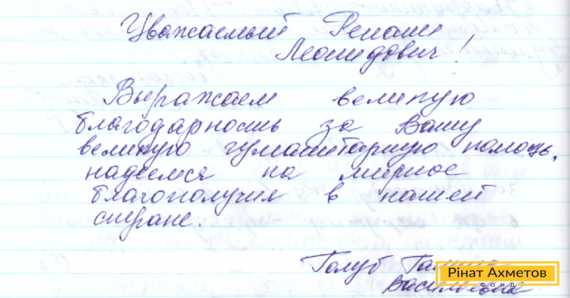 Уважаемый Ренат
Леонидович!
Выражаем великую
благодарность за Вашу
великую гуманитарную помощь,
надеемся на мирное
благополучия в нашей
стране.
Голуб
Васильевна
Рінат Ахметов